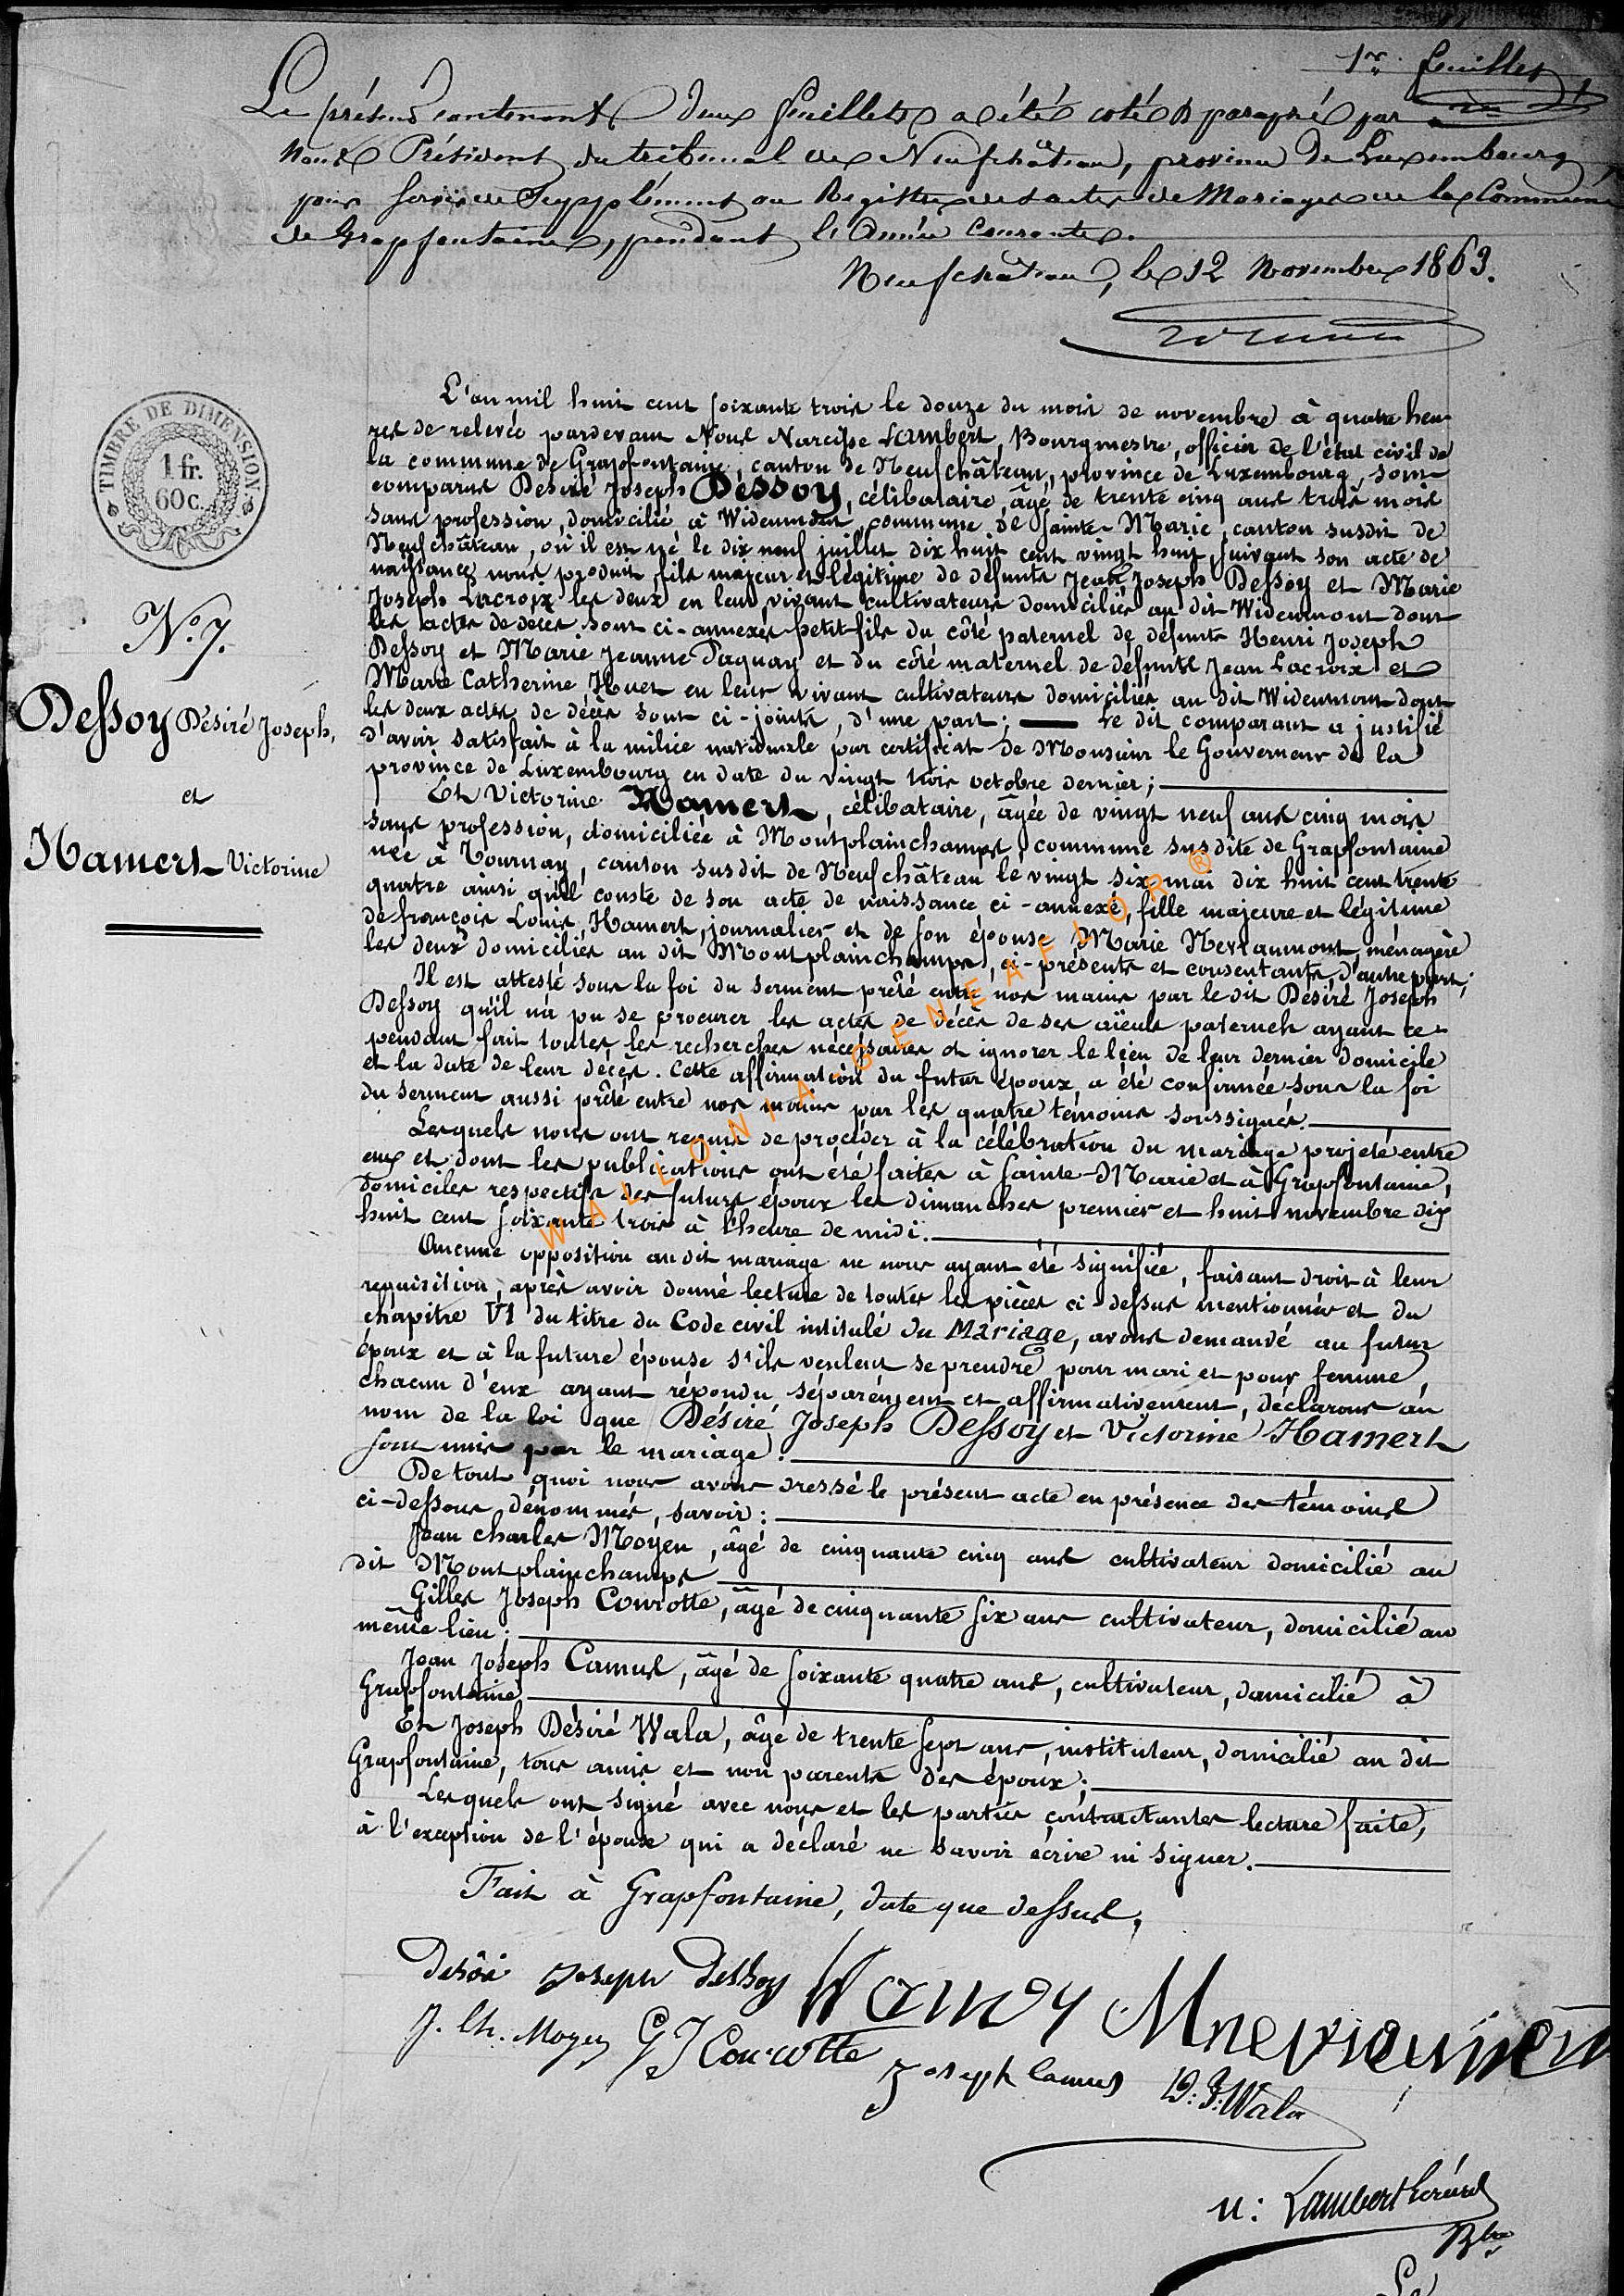 1er feuillet
Le présent contenant deux feuillets a été coté & paraphé par
Nous Président du tribunal de Neufchâteau, province de Luxembourg
pour servir de Supplément au Registre des actes de Mariages de la Commune
de Grapfontaine, pendant l'Année Courante.
Neufchâteau, le 12 Novembre 1863.
TIMBRE DE DIMENSION
1 fr.
60 c.
N° 7.
Dessoy Désiré Joseph,
et
Hamert Victorine
L'an mil huit cent soixante trois le douze du mois de novembre à quatre heu-
res de relevée pardevant Nous Narcisse Lambert, Bourgmestre, officier de l'état civil de
la commune de Grapfontaine, canton de Neufchâteau, province de Luxembourg, sont
comparus Désiré Joseph Dessoy, célibataire, âgé de trente cinq ans trois mois
sans profession, domicilié à Wideumont, commune de Sainte-Marie, canton susdit de
Neufchâteau, où il est né le dix neuf juillet dix huit cent vingt huit, suivant son acte de
naissance nous produit, fils majeur et légitime de défunts Jean Joseph Dessoy et Marie
Joseph Lacroix les deux en leur vivant cultivateurs domiciliés au dit Wideumont dont
les actes de décès sont ci-annexés petit-fils du côté paternel de défunts Henri Joseph
Dessoy et Marie Jeanne Paquay et du côté maternel de défunts Jean Lacroix et
Marie Catherine Huet en leur vivant cultivateurs domiciliés au dit Wideumont dont
les deux actes de décès sont ci-joints, d'une part; le dit comparant a justifié
d'avoir satisfait à la milice nationale par certificat de Monsieur le Gouverneur de la
province de Luxembourg en date du vingt trois octobre dernier;
Et Victorine Hamert, célibataire, âgée de vingt neuf ans cinq mois
sans profession, domiciliée à Montplainchamps, commune susdite de Grapfontaine
née à Tournay, canton susdit de Neufchâteau le vingt six mai dix huit cent trente
quatre ainsi qu'il conste de son acte de naissance ci-annexé, fille majeure et légitime
de françois Louis Hamert, journalier et de son épouse Marie Nerraumont, ménagère
les deux domiciliés au dit Montplainchamps, ci-présents et consentants, d'autre part;
Il est attesté sous la foi du serment prêté entre nos mains par le dit Désiré Joseph
Dessoy qu'il n'a pu se procurer les actes de décès de ses aïeuls paternels ayant ce-
pendant fait toutes les recherches nécessaires et ignorer le lieu de leur dernier domicile
et la date de leur décès. Cette affirmation du futur époux a été confirmée sous la foi
du serment aussi prêté entre nos mains par les quatre témoins soussignés.
Lesquels nous ont requis de procéder à la célébration du mariage projeté entre
eux et dont les publications ont été faites à Sainte-Marie et à Grapfontaine,
domiciles respectifs des futurs époux les dimanches premier et huit novembre dix
huit cent soixante trois à l'heure de midi.
Aucune opposition au dit mariage ne nous ayant été signifiée, faisant droit à leur
requisition, après avoir donné lecture de toutes les pièces ci-dessus mentionnées et du
chapitre VI du titre du Code civil intitulé du Mariage, avons demandé au futur
époux et à la future épouse s'ils veulent se prendre pour mari et pour femme,
chacun d'eux ayant répondu séparément et affirmativement, déclarons au
nom de la loi que Désiré Joseph Dessoy et Victorine Hamert
sont unis par le mariage.
De tout quoi nous avons dressé le présent acte en présence des témoins
ci-dessous dénommés, savoir:
Jean charles Moyen, âgé de cinquante cinq ans cultivateur domicilié au
dit Montplainchamps
Gilles Joseph Courotte, âgé de cinquante six ans cultivateur, domicilié au
même lieu;
Jean Joseph Camus, âgé de soixante quatre ans, cultivateur, domicilié à
Grapfontaine
Et Joseph Désiré Wala, âgé de trente sept ans, instituteur, domicilié au dit
Grapfontaine, tous amis et non parents des époux;
Lesquels ont signé avec nous et les parties contractantes lecture faite,
à l'exception de l'épouse qui a déclaré ne savoir écrire ni signer.
Fait à Grapfontaine, date que dessus,
Désiré Joseph Dessoy
J. Ch. Moyen G J Courotte
Joseph Camus D. J. Wala
N: Lambert
WALLONIA-GENEAFLOR®